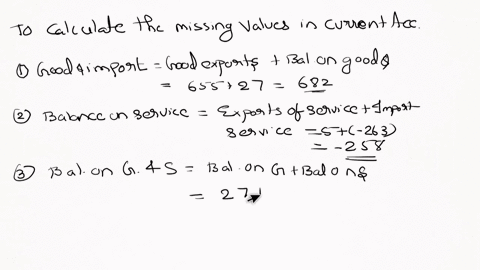 To calculate the missing values in current Acc.
① Good & import = Good exports + Bal on goods
= 655 + 27 = 682
② Balance on service = Exports of service + Import
service = 5 + (-263)
= -258
③ Bal. on G & S = Bal. on G + Bal on S
= 27